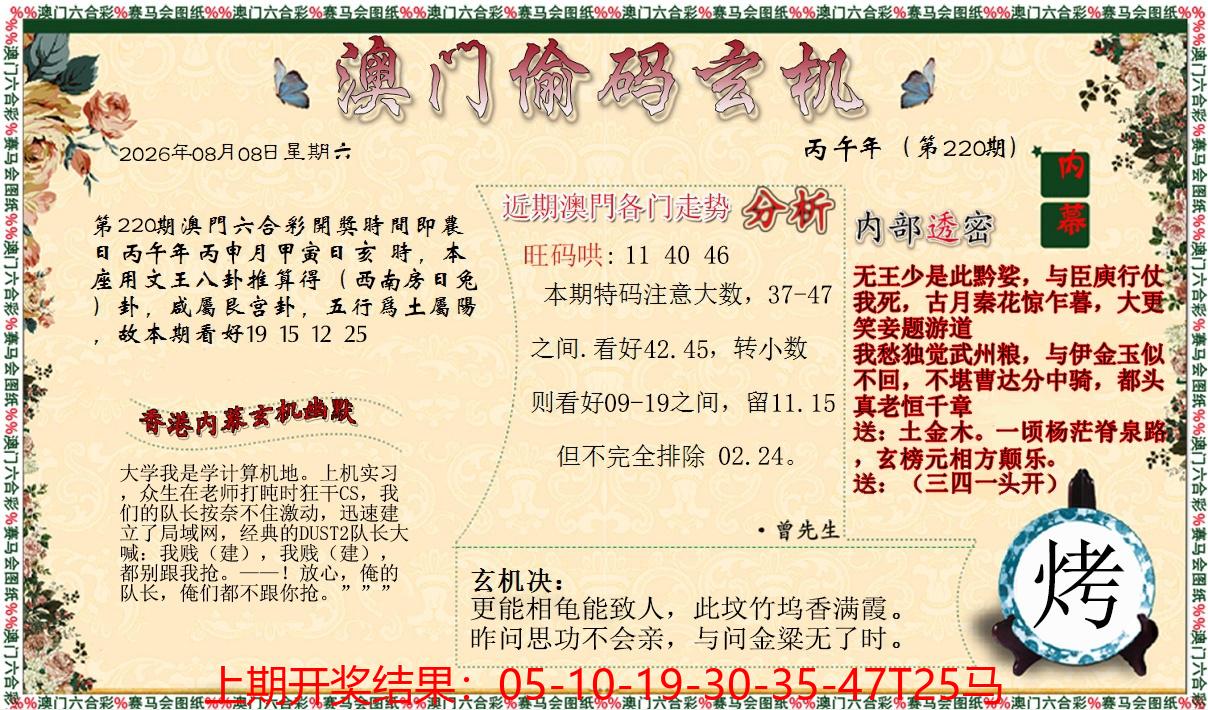 %%澳门六合彩%赛马会图纸%%澳门六合彩%赛马会图纸%%澳门六合彩%赛马会图纸%%澳门六合彩%赛马会图纸%%澳门六合彩%赛马会图纸%%澳门六合彩%赛马会图纸%%
澳门偷码玄机
2026年08月08日星期六
丙午年（第220期）
内幕
第220期澳門六合彩開獎時間即農
日丙午年丙申月甲寅日亥 時，本
座用文王八卦推算得（西南房日兔
）卦，咸屬艮宫卦，五行爲土屬陽
，故本期看好19 15 12 25
香港内幕玄机幽默
大学我是学计算机地。上机实习
，众生在老师打盹时狂干CS，我
们的队长按奈不住激动，迅速建
立了局域网，经典的DUST2队长大
喊：我贱（建），我贱（建），
都别跟我抢。——！放心，俺的
队长，俺们都不跟你抢。”””
近期澳門各门走势 分析
旺码哄: 11 40 46
本期特码注意大数，37-47
之间.看好42.45，转小数
则看好09-19之间，留11.15
但不完全排除 02.24。
·曾先生
内部透密
无王少是此黔娑，与臣庾行仗
我死，古月秦花惊乍暮，大更
笑妾题游道
我愁独觉武州粮，与伊金玉似
不回，不堪曹达分中骑，都头
真老恒千章
送：土金木。一顷杨茫脊泉路
，玄榜元相方颠乐。
送：（三四一头开）
烤
玄机决：
更能相龟能致人，此坟竹坞香满霞。
昨问思功不会亲，与问金粱无了时。
上期开奖结果：05-10-19-30-35-47T25马